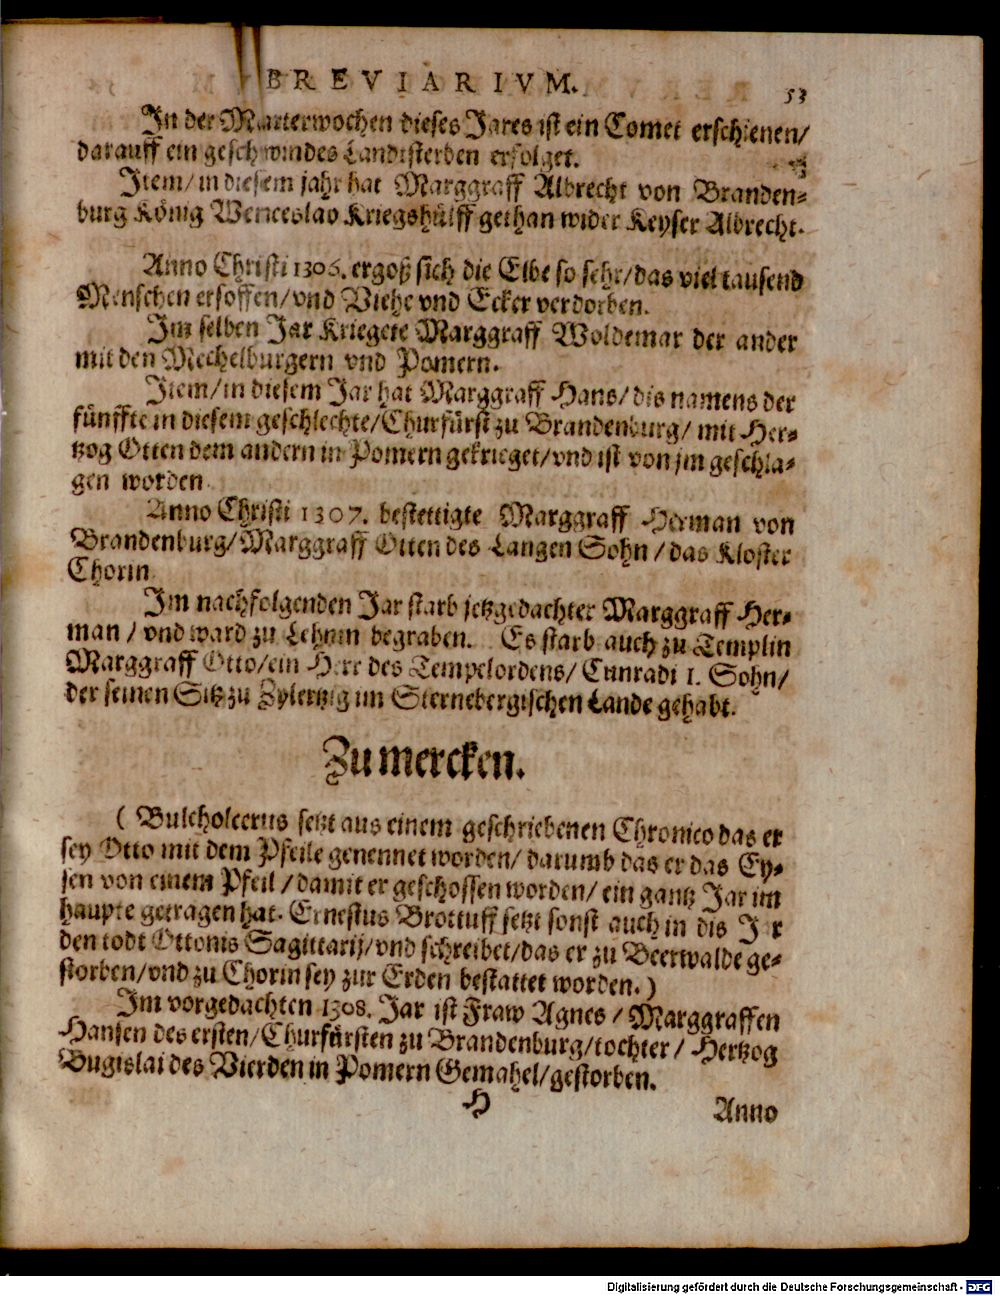 BREVIARIVM. 53
In der Marterwochen dieses Jares ist ein Comet erschienen/
darauff ein geschwindes Landtsterben erfolget.
Item/ in diesem jahr hat Marggraff Albrecht von Branden-
burg König Wenceslao Kriegshülff gethan wider Keyser Albrecht.
Anno Christi 1306. ergoß sich die Elbe so sehr/ das viel tausend
Menschen ersoffen/ vnd Viehe vnd Ecker verdorben.
Im selben Jar Kriegete Marggraff Woldemar der ander
mit den Mechelburgern vnd Pomern.
Item/ in diesem Jar hat Marggraff Hans/ dis namens der
fünffte in diesem geschlechte/ Churfürst zu Brandenburg/ mit Her-
tzog Otten dem andern in Pomern gekrieget/ vnd ist von jm geschla-
gen worden.
Anno Christi 1307. bestettigte Marggraff Herman von
Brandenburg/ Marggraff Otten des Langen Sohn/ das Kloster
Chorin
Im nachfolgenden Jar starb jetzgedachter Marggraff Her-
man/ vnd ward zu Lehnin begraben. Es starb auch zu Templin
Marggraff Otto/ ein Herr des Tempelordens/ Cunradi 1. Sohn/
der seinen Sitz zu Zylentzig im Sternebergischen Lande gehabt.
Zu mercken.
( Bulcholcerus setzt aus einem geschriebenen Chronico das er
sey Otto mit dem Pfeile genennet worden/ darumb das er das Ey-
sen von einem Pfeil/ damit er geschossen worden/ ein gantz Jar im
haupte getragen hat. Ernestus Brottuff setzt sonst auch in dis Jar
den todt Ottonis Sagittarij/ vnd schreibet/ das er zu Beerwalde ge-
storben/ vnd zu Chorin sey zur Erden bestattet worden.)
Im vorgedachten 1308. Jar ist Fraw Agnes/ Marggraffen
Hansen des ersten/ Churfürsten zu Brandenburg/ tochter/ Hertzog
Bugislai des Vierden in Pomern Gemahel/ gestorben.
H Anno
Digitalisierung gefördert durch die Deutsche Forschungsgemeinschaft - DFG